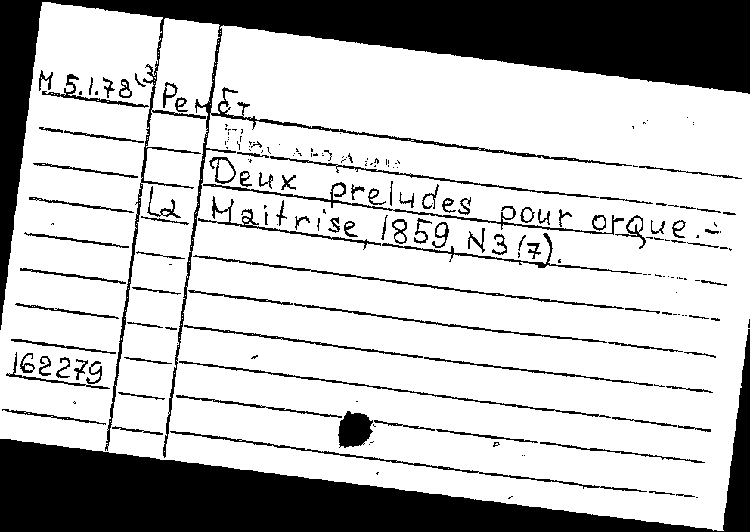 М 5.1.78 Рембт,
Прелюдии
Deux preludes pour orque.-
La Maitrise, 1859, N3(7).
162279